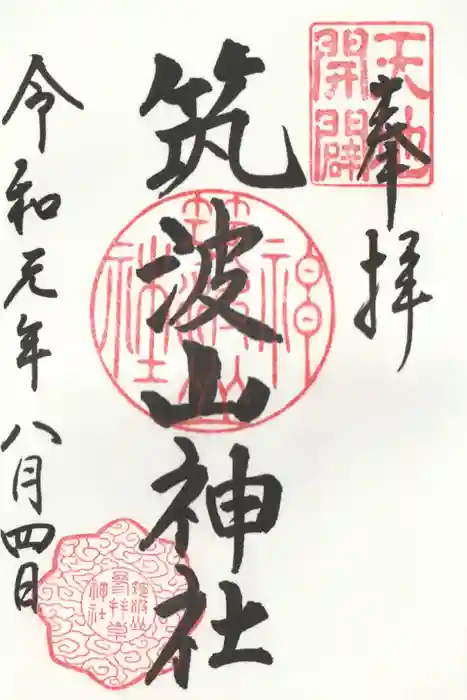 奉拝
天地
開闢
筑波山神社
筑波山
神社
令和元年八月四日
筑波山
神社